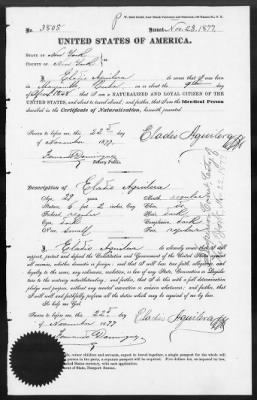 No. 3808
Issued Nov. 23, 1877.
UNITED STATES OF AMERICA.
STATE OF New York
COUNTY OF New York
I, Eladio Aguilera do swear that I was born
in Cuba on the day
of 1848 that I am a NATURALIZED AND LOYAL CITIZEN OF THE
UNITED STATES, and about to travel abroad; and further, that I am the Identical Person
described in the Certificate of Naturalization, herewith presented.
Sworn to before me this 22d day
of November 1877.
Eladio Aguilera
Notary Public.
Description of Eladio Aguilera
Age, 29 years
Mouth, regular
Stature, 5 feet 2 inches Eng.
Chin,
Forehead, regular
Hair, dark
Eyes, dark
Complexion, dark
Nose, small
Face, regular
I, Eladio Aguilera do solemnly swear that I will
support, protect and defend the Constitution and Government of the United States against
all enemies, whether domestic or foreign; and that I will bear true faith, allegiance and
loyalty to the same, any ordinance, resolution or law of any State, Convention or Legislature
to the contrary notwithstanding; and further, that I do this with a full determination,
pledge and purpose, without any mental reservation or evasion whatsoever; and further,
that I will well and faithfully perform all the duties which may be required of me by law.
So help me God.
Sworn to before me, this 22d day
of November 1877
Eladio Aguilera